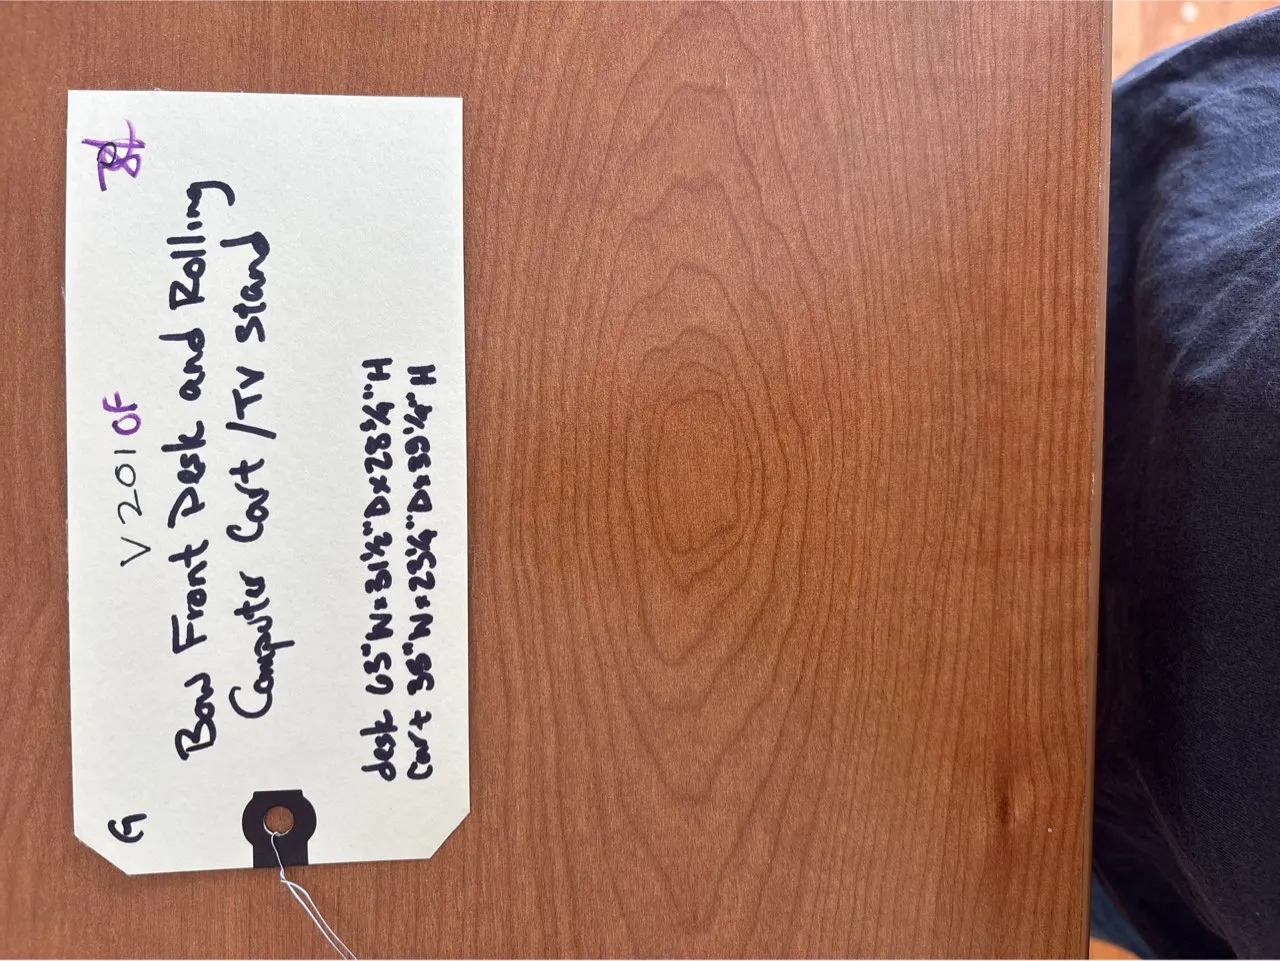 G
V201 OF
Bow Front Desk and Rolling
Computer Cart/TV Stand
desk 63"W x 31½"D x 28¾"H
Cart 35"W x 23¼"D x 39¼"H